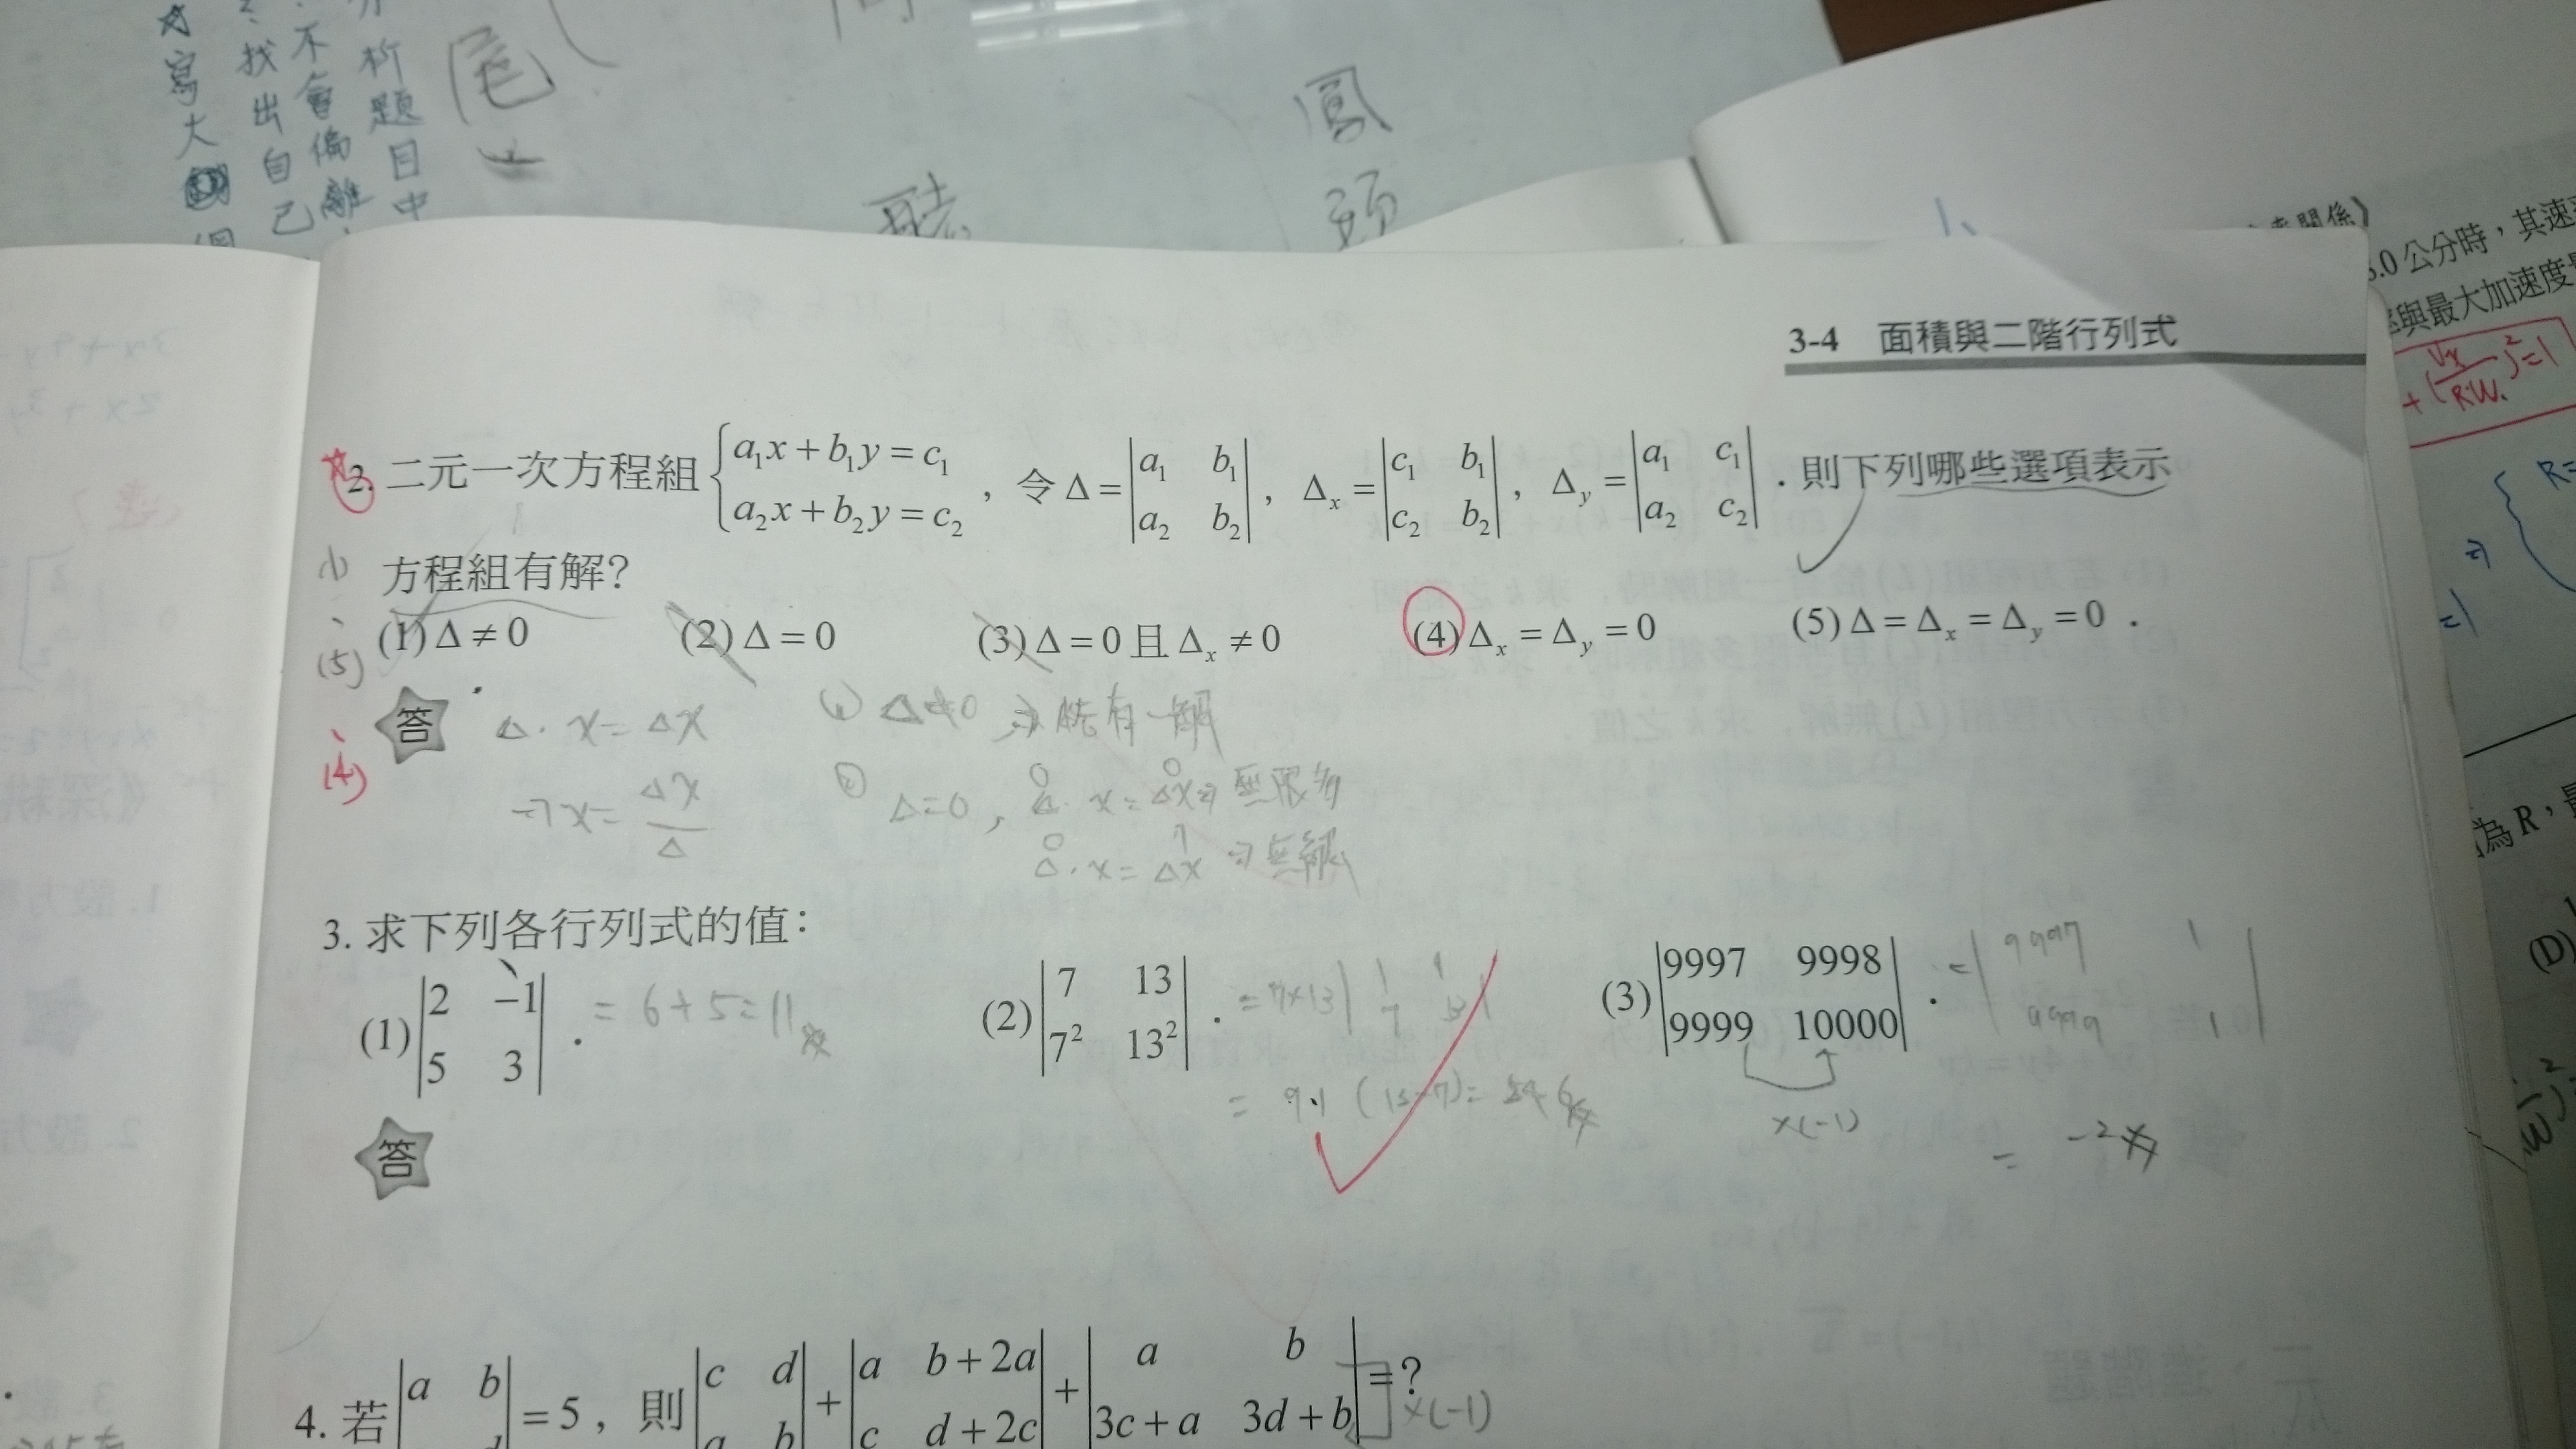 寫大
找出自己
不會偏離
析題目中
尾
聽
鳳頭
3-4 面積與二階行列式
2. 二元一次方程組 { a₁x + b₁y = c₁ , a₂x + b₂y = c₂ ，令 Δ = | a₁ b₁ ; a₂ b₂ | ，Δx = | c₁ b₁ ; c₂ b₂ | ，Δy = | a₁ c₁ ; a₂ c₂ | ．則下列哪些選項表示
方程組有解？
(1) Δ ≠ 0 (2) Δ = 0 (3) Δ = 0 且 Δx ≠ 0 (4) Δx = Δy = 0 (5) Δ = Δx = Δy = 0 ．
(1)、(5)、(4)
答
Δ · x = Δx
→ x = Δx / Δ
Δ ≠ 0 → 一解
Δ = 0 , Δ · x = Δx → 無限多
Δ · x = Δx → 無解
3. 求下列各行列式的值：
(1) | 2 −1 ; 5 3 | ． = 6 + 5 = 11
(2) | 7 13 ; 7² 13² | ． = 7×13 | 1 1 ; 7 13 |
= 91 (13−7) = 546
(3) | 9997 9998 ; 9999 10000 | ． = | 9997 1 ; 9999 1 |
×(−1)
= −2
答
4. 若 | a b | = 5 ，則 | c d ; a b | + | a b + 2a ; c d + 2c | + | a b ; 3c + a 3d + b | = ?
×(−1)
.0 公分時，其速
與最大加速度
+ (Vx / RW)² = 1
為 R，
(D)